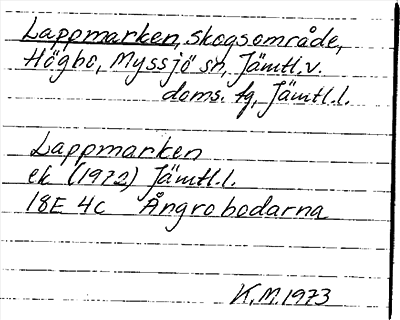 Lappmarken, skogsområde,
Högbo, Myssjö sn, Jämtl.v.
doms. tg, Jämtl.l.
Lappmarken
ek (1972) Jämtl.l.
18E 4c Ångrobodarna
K.M.1973